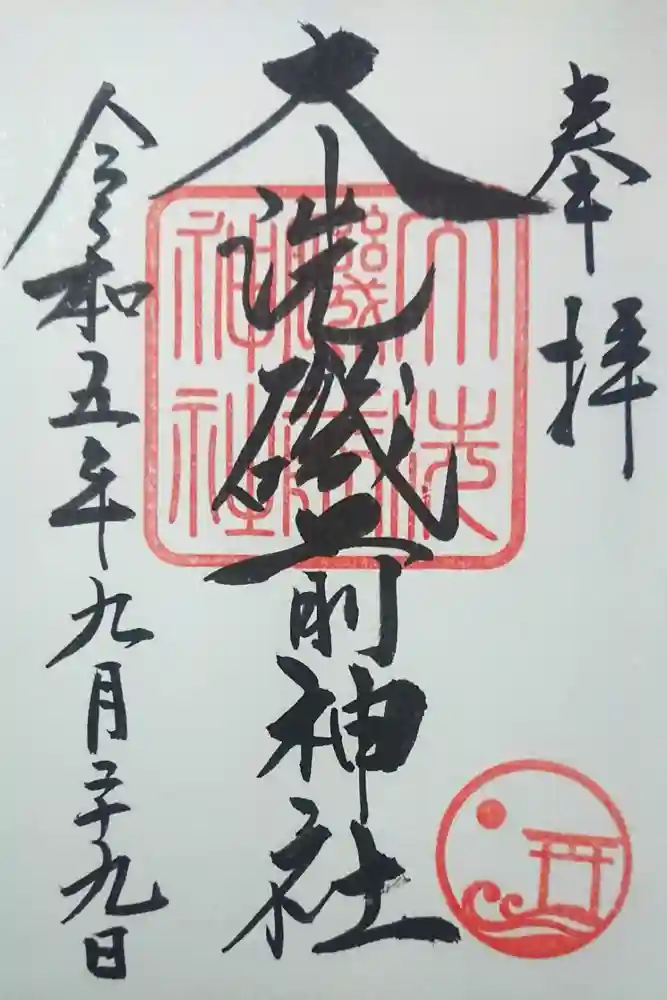 奉拝
大洗磯前神社
大洗
磯前
神社
令和五年九月二十九日